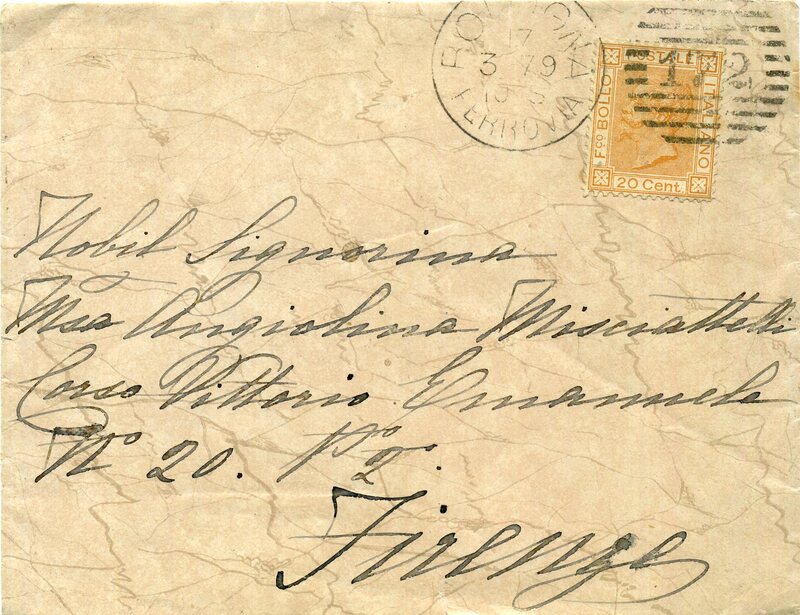 17
3 79
FERROVIA
Fco BOLLO POSTALE ITALIANO
20 Cent.
Nobil Signorina
Msa Angiolina Misciattelli
Corso Vittorio Emanuele
No 20. Po 2o.
Firenze